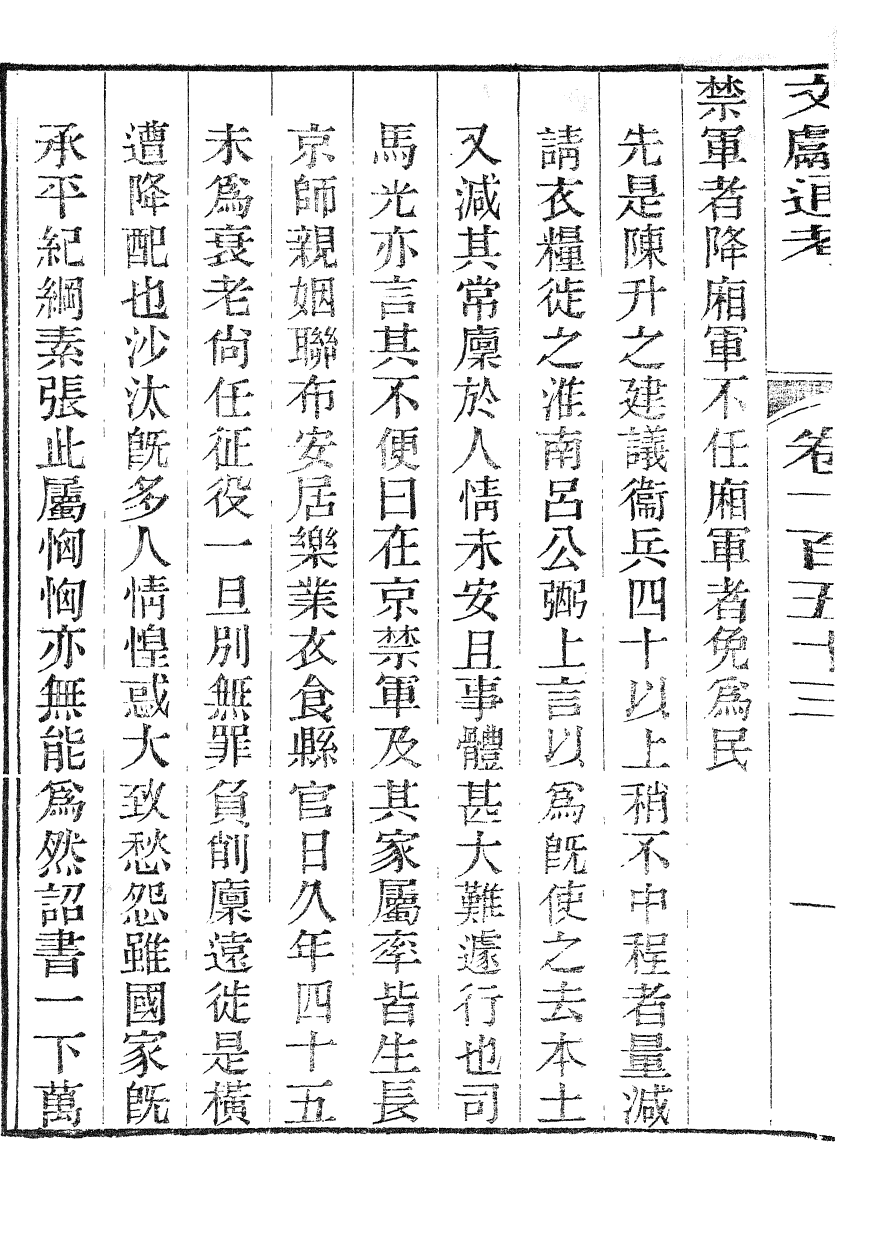 文獻通考 卷一百五十三 一
禁軍者降廂軍不任廂軍者免爲民
先是陳升之建議衞兵四十以上稍不中程者量減
請衣糧徙之淮南呂公弼上言以爲旣使之去本土
又減其常廩於人情未安且事體甚大難遽行也司
馬光亦言其不便曰在京禁軍及其家屬率皆生長
京師親姻聯布安居樂業衣食縣官日久年四十五
未爲衰老尙任征役一旦別無罪負削廩遠徙是橫
遭降配也沙汰旣多人情惶惑大致愁怨雖國家旣
承平紀綱素張此屬恟恟亦無能爲然詔書一下萬